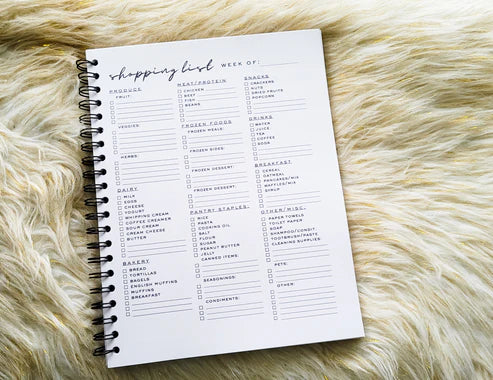 shopping list WEEK OF:
PRODUCE
FRUIT:
VEGGIES:
HERBS:
DAIRY
MILK
EGGS
CHEESE
YOGURT
WHIPPING CREAM
COFFEE CREAMER
SOUR CREAM
CREAM CHEESE
BUTTER
BAKERY
BREAD
TORTILLAS
BAGELS
ENGLISH MUFFINS
MUFFINS
BREAKFAST
MEAT/PROTEIN
CHICKEN
BEEF
FISH
BEANS
FROZEN FOODS
FROZEN MEALS:
FROZEN SIDES:
FROZEN DESSERT:
FROZEN DESSERT:
PANTRY STAPLES:
RICE
PASTA
COOKING OIL
SALT
FLOUR
SUGAR
PEANUT BUTTER
JELLY
CANNED ITEMS:
SEASONINGS:
CONDIMENTS:
SNACKS
CRACKERS
NUTS
DRIED FRUITS
POPCORN
DRINKS
WATER
JUICE
TEA
COFFEE
SODA
BREAKFAST
CEREAL
OATMEAL
PANCAKES/MIX
WAFFLES/MIX
SYRUP
OTHER/MISC.
PAPER TOWELS
TOILET PAPER
SOAP
SHAMPOO/CONDIT.
TOOTBRUSH/PASTE
CLEANING SUPPLIES:
PETS:
OTHER: